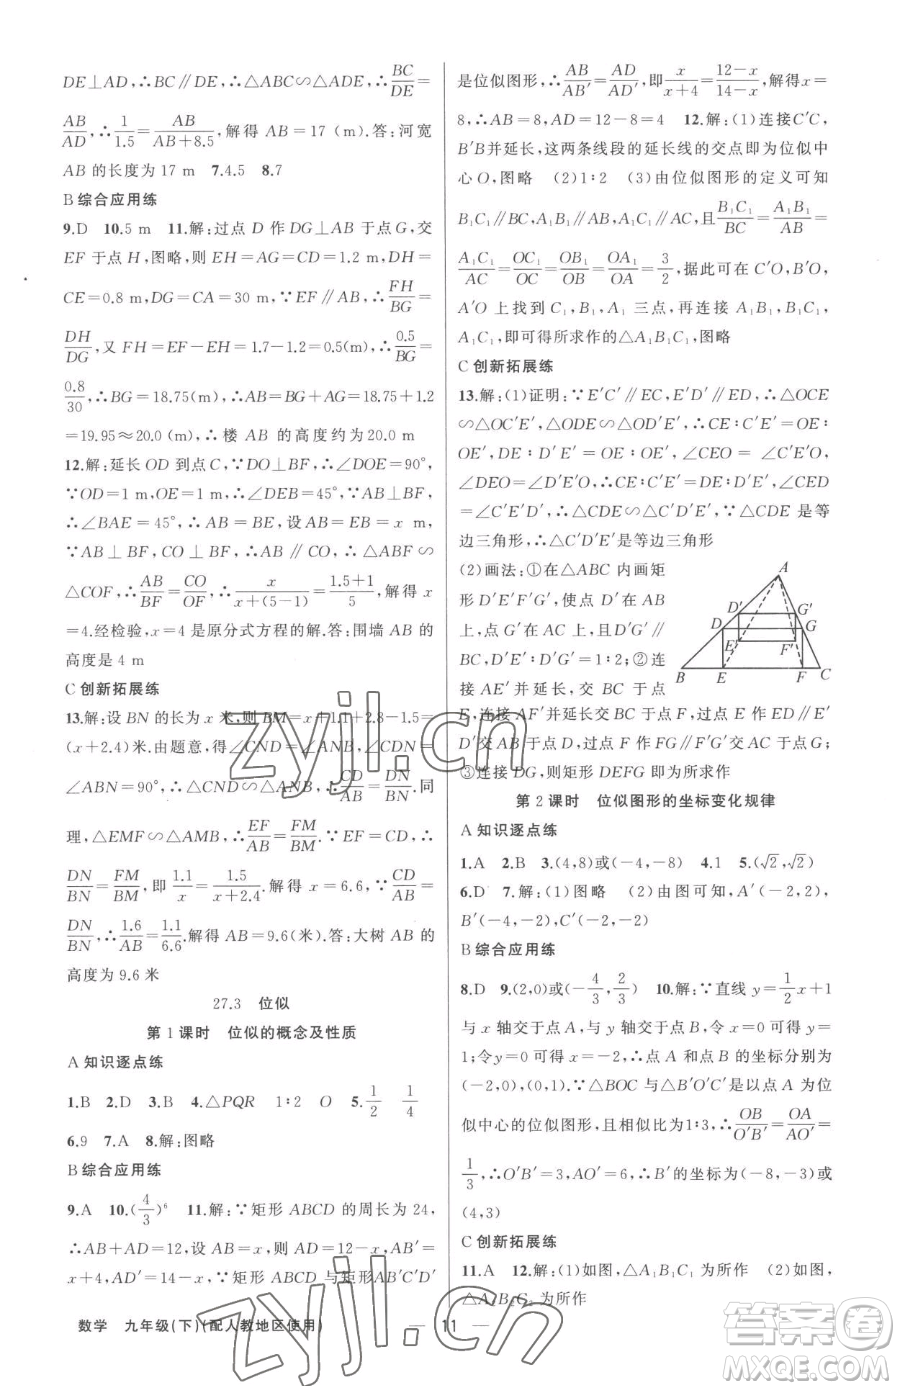 DE⊥AD,∴BC∥DE,∴△ABC∽△ADE,∴BC/DE=
AB/AD,∴1/1.5=AB/(AB+8.5),解得 AB=17 (m).答:河宽
AB 的长度为 17 m 7.4.5 8.7
B 综合应用练
9.D 10.5 m 11.解:过点 D 作 DG⊥AB 于点 G,交
EF 于点 H,图略,则 EH=AG=CD=1.2 m,DH=
CE=0.8 m,DG=CA=30 m,∵EF∥AB,∴FH/BG=
DH/DG,又 FH=EF-EH=1.7-1.2=0.5(m),∴0.5/BG=
0.8/30,∴BG=18.75(m),∴AB=BG+AG=18.75+1.2
=19.95≈20.0 (m),∴楼 AB 的高度约为 20.0 m
12.解:延长 OD 到点 C,∵DO⊥BF,∴∠DOE=90°,
∵OD=1 m,OE=1 m,∴∠DEB=45°,∵AB⊥BF,
∴∠BAE=45°,∴AB=BE,设 AB=EB=x m,
∵AB⊥BF,CO⊥BF,∴AB∥CO,∴△ABF∽
△COF,∴AB/BF=CO/OF,∴x/(x+(5-1))=(1.5+1)/5,解得 x
=4.经检验,x=4 是原分式方程的解.答:围墙 AB 的
高度是 4 m
C 创新拓展练
13.解:设 BN 的长为 x 米,则 BM=x+1.1+2.8-1.5=
(x+2.4)米.由题意,得∠CND=∠ANB,∠CDN=
∠ABN=90°,∴△CND∽△ANB,∴CD/AB=DN/BN.同
理,△EMF∽△AMB,∴EF/AB=FM/BM.∵EF=CD,∴
DN/BN=FM/BM,即1.1/x=1.5/(x+2.4).解得 x=6.6,∵CD/AB=
DN/BN,∴1.6/AB=1.1/6.6.解得 AB=9.6(米).答:大树 AB 的
高度为 9.6 米
27.3 位似
第 1 课时 位似的概念及性质
A 知识逐点练
1.B 2.D 3.B 4.△PQR 1∶2 O 5.1/2 1/4
6.9 7.A 8.解:图略
B 综合应用练
9.A 10.(4/3)⁶ 11.解:∵矩形 ABCD 的周长为 24,
∴AB+AD=12,设 AB=x,则 AD=12-x,AB′=
x+4,AD′=14-x,∵矩形 ABCD 与矩形AB′C′D′
是位似图形,∴AB/AB′=AD/AD′,即x/(x+4)=(12-x)/(14-x),解得 x=
8,∴AB=8,AD=12-8=4 12.解:(1)连接 C′C,
B′B并延长,这两条线段的延长线的交点即为位似中
心 O,图略 (2)1∶2 (3)由位似图形的定义可知
B₁C₁∥BC,A₁B₁∥AB,A₁C₁∥AC,且B₁C₁/BC=A₁B₁/AB=
A₁C₁/AC=OC₁/OC=OB₁/OB=OA₁/OA=3/2,据此可在 C′O,B′O,
A′O 上找到 C₁,B₁,A₁ 三点,再连接 A₁B₁,B₁C₁,
A₁C₁,即可得所求作的△A₁B₁C₁,图略
C 创新拓展练
13.解:(1)证明:∵E′C′∥EC,E′D′∥ED,∴△OCE
∽△OC′E′,△ODE∽△OD′E′,∴CE∶C′E′=OE∶
OE′,DE∶D′E′=OE∶OE′,∠CEO=∠C′E′O,
∠DEO=∠D′E′O,∴CE∶C′E′=DE∶D′E′,∠CED
=∠C′E′D′,∴△CDE∽△C′D′E′,∵△CDE 是等
边三角形,∴△C′D′E′是等边三角形
(2)画法:①在△ABC 内画矩
形 D′E′F′G′,使点 D′在 AB
上,点 G′在 AC 上,且D′G′∥
BC,D′E′∶D′G′=1∶2;②连
接 AE′并延长,交 BC 于点
E,连接 AF′并延长交 BC 于点 F,过点 E 作 ED∥E′
D′交 AB 于点 D,过点 F 作 FG∥F′G′交 AC 于点 G;
③连接 DG,则矩形 DEFG 即为所求作
A
D′ G′
D G
E′ F′
B E F C
第 2 课时 位似图形的坐标变化规律
A 知识逐点练
1.A 2.B 3.(4,8)或(-4,-8) 4.1 5.(√2,√2)
6.D 7.解:(1)图略 (2)由图可知,A′(-2,2),
B′(-4,-2),C′(-6,2)
B 综合应用练
8.D 9.(2,0)或(-4/3,2/3) 10.解:∵直线 y=1/2x+1
与 x 轴交于点 A,与 y 轴交于点 B,令 x=0 可得 y=
1;令 y=0 可得 x=-2,∴点 A 和点 B 的坐标分别为
(-2,0),(0,1).∵△BOC 与△B′O′C′是以点 A 为位
似中心的位似图形,且相似比为 1∶3,∴OB/O′B′=OA/AO′=
1/3,∴O′B′=3,AO′=6,∴B′的坐标为(-8,-3)或
(4,3)
C 创新拓展练
11.A 12.解:(1)如图,△A₁B₁C₁ 为所作 (2)如图,
△A₂B₂C₂ 为所作
数学 九年级(下)(配人教地区使用) — 11 —
zyjl.cn
zyjl.cn
答案圈
MXQE.COM